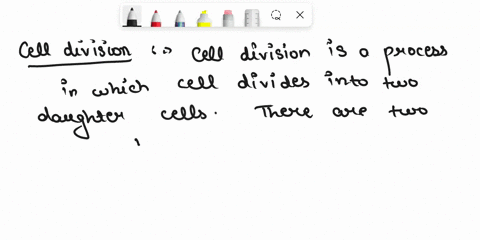 Cell division :- Cell division is a process
in which cell divides into two
daughter cells. There are two